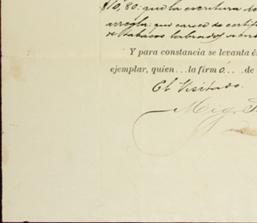 $10,80. que la escritura de
arregla: que carece de certifi
de tabacos labrados
Y para constancia se levanta
ejemplar, quien...la firmó.... de
El Visitado.
Mig.